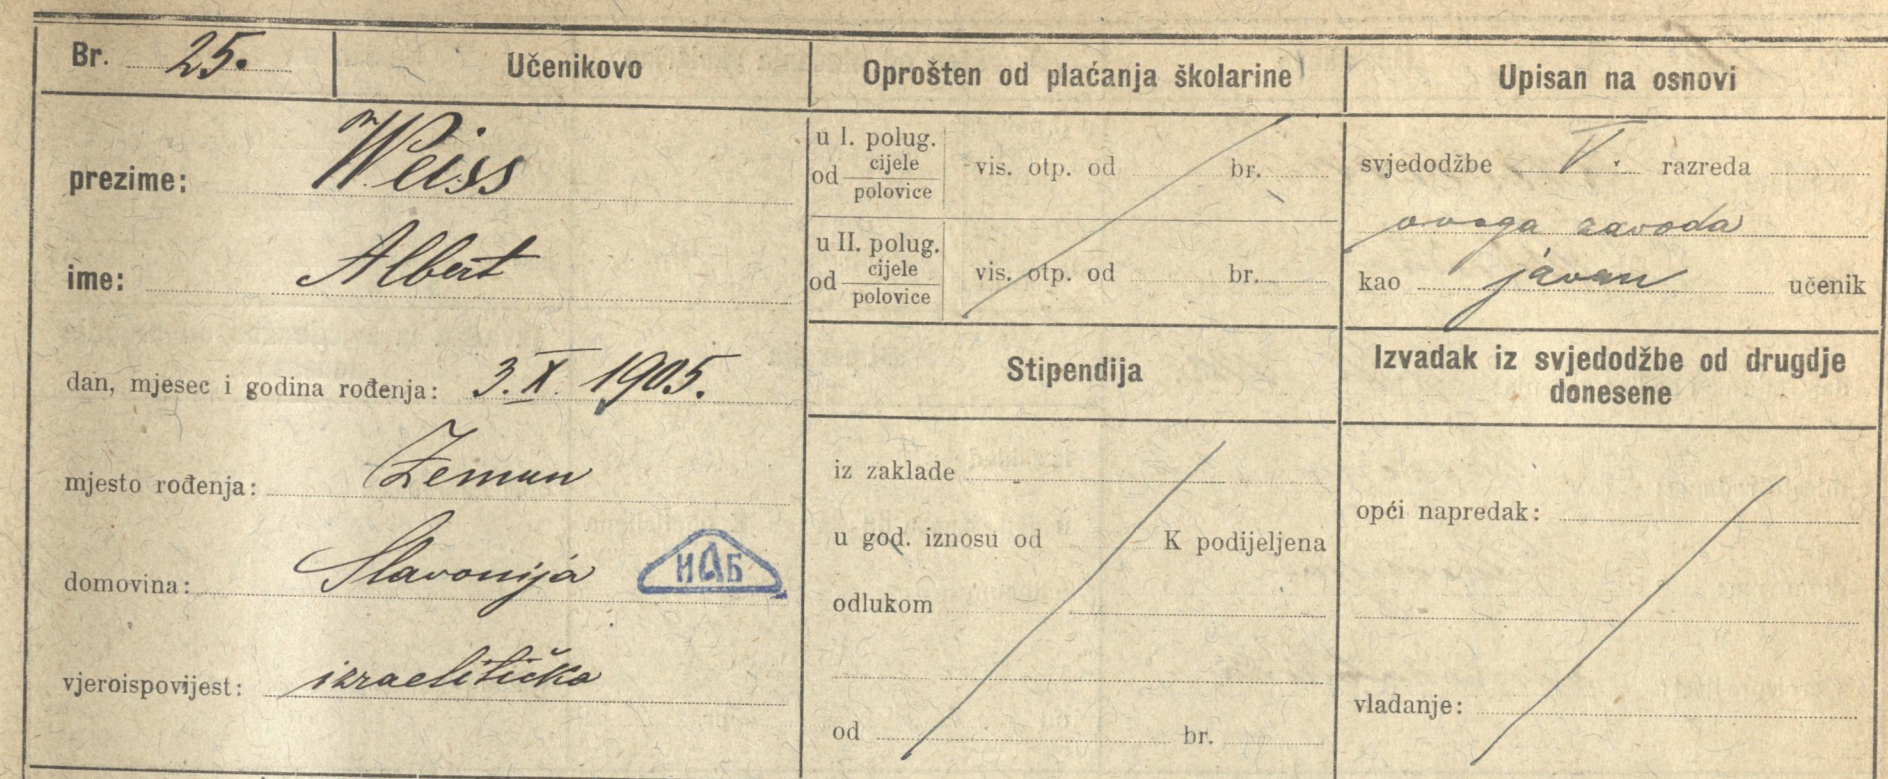 Br. 25. Učenikovo
prezime: Weiss
ime: Albert
dan, mjesec i godina rođenja: 3. X. 1905.
mjesto rođenja: Zemun
domovina: Slavonija
ИАБ
vjeroispovijest: izraelitička
Oprošten od plaćanja školarine
u I. polug.
od cijele vis. otp. od br.
polovice
u II. polug.
od cijele vis. otp. od br.
polovice
Stipendija
iz zaklade
u god. iznosu od K podijeljena
odlukom
od br.
Upisan na osnovi
svjedodžbe V. razreda
ovoga zavoda
kao javan učenik
Izvadak iz svjedodžbe od drugdje
donesene
opći napredak:
vladanje: